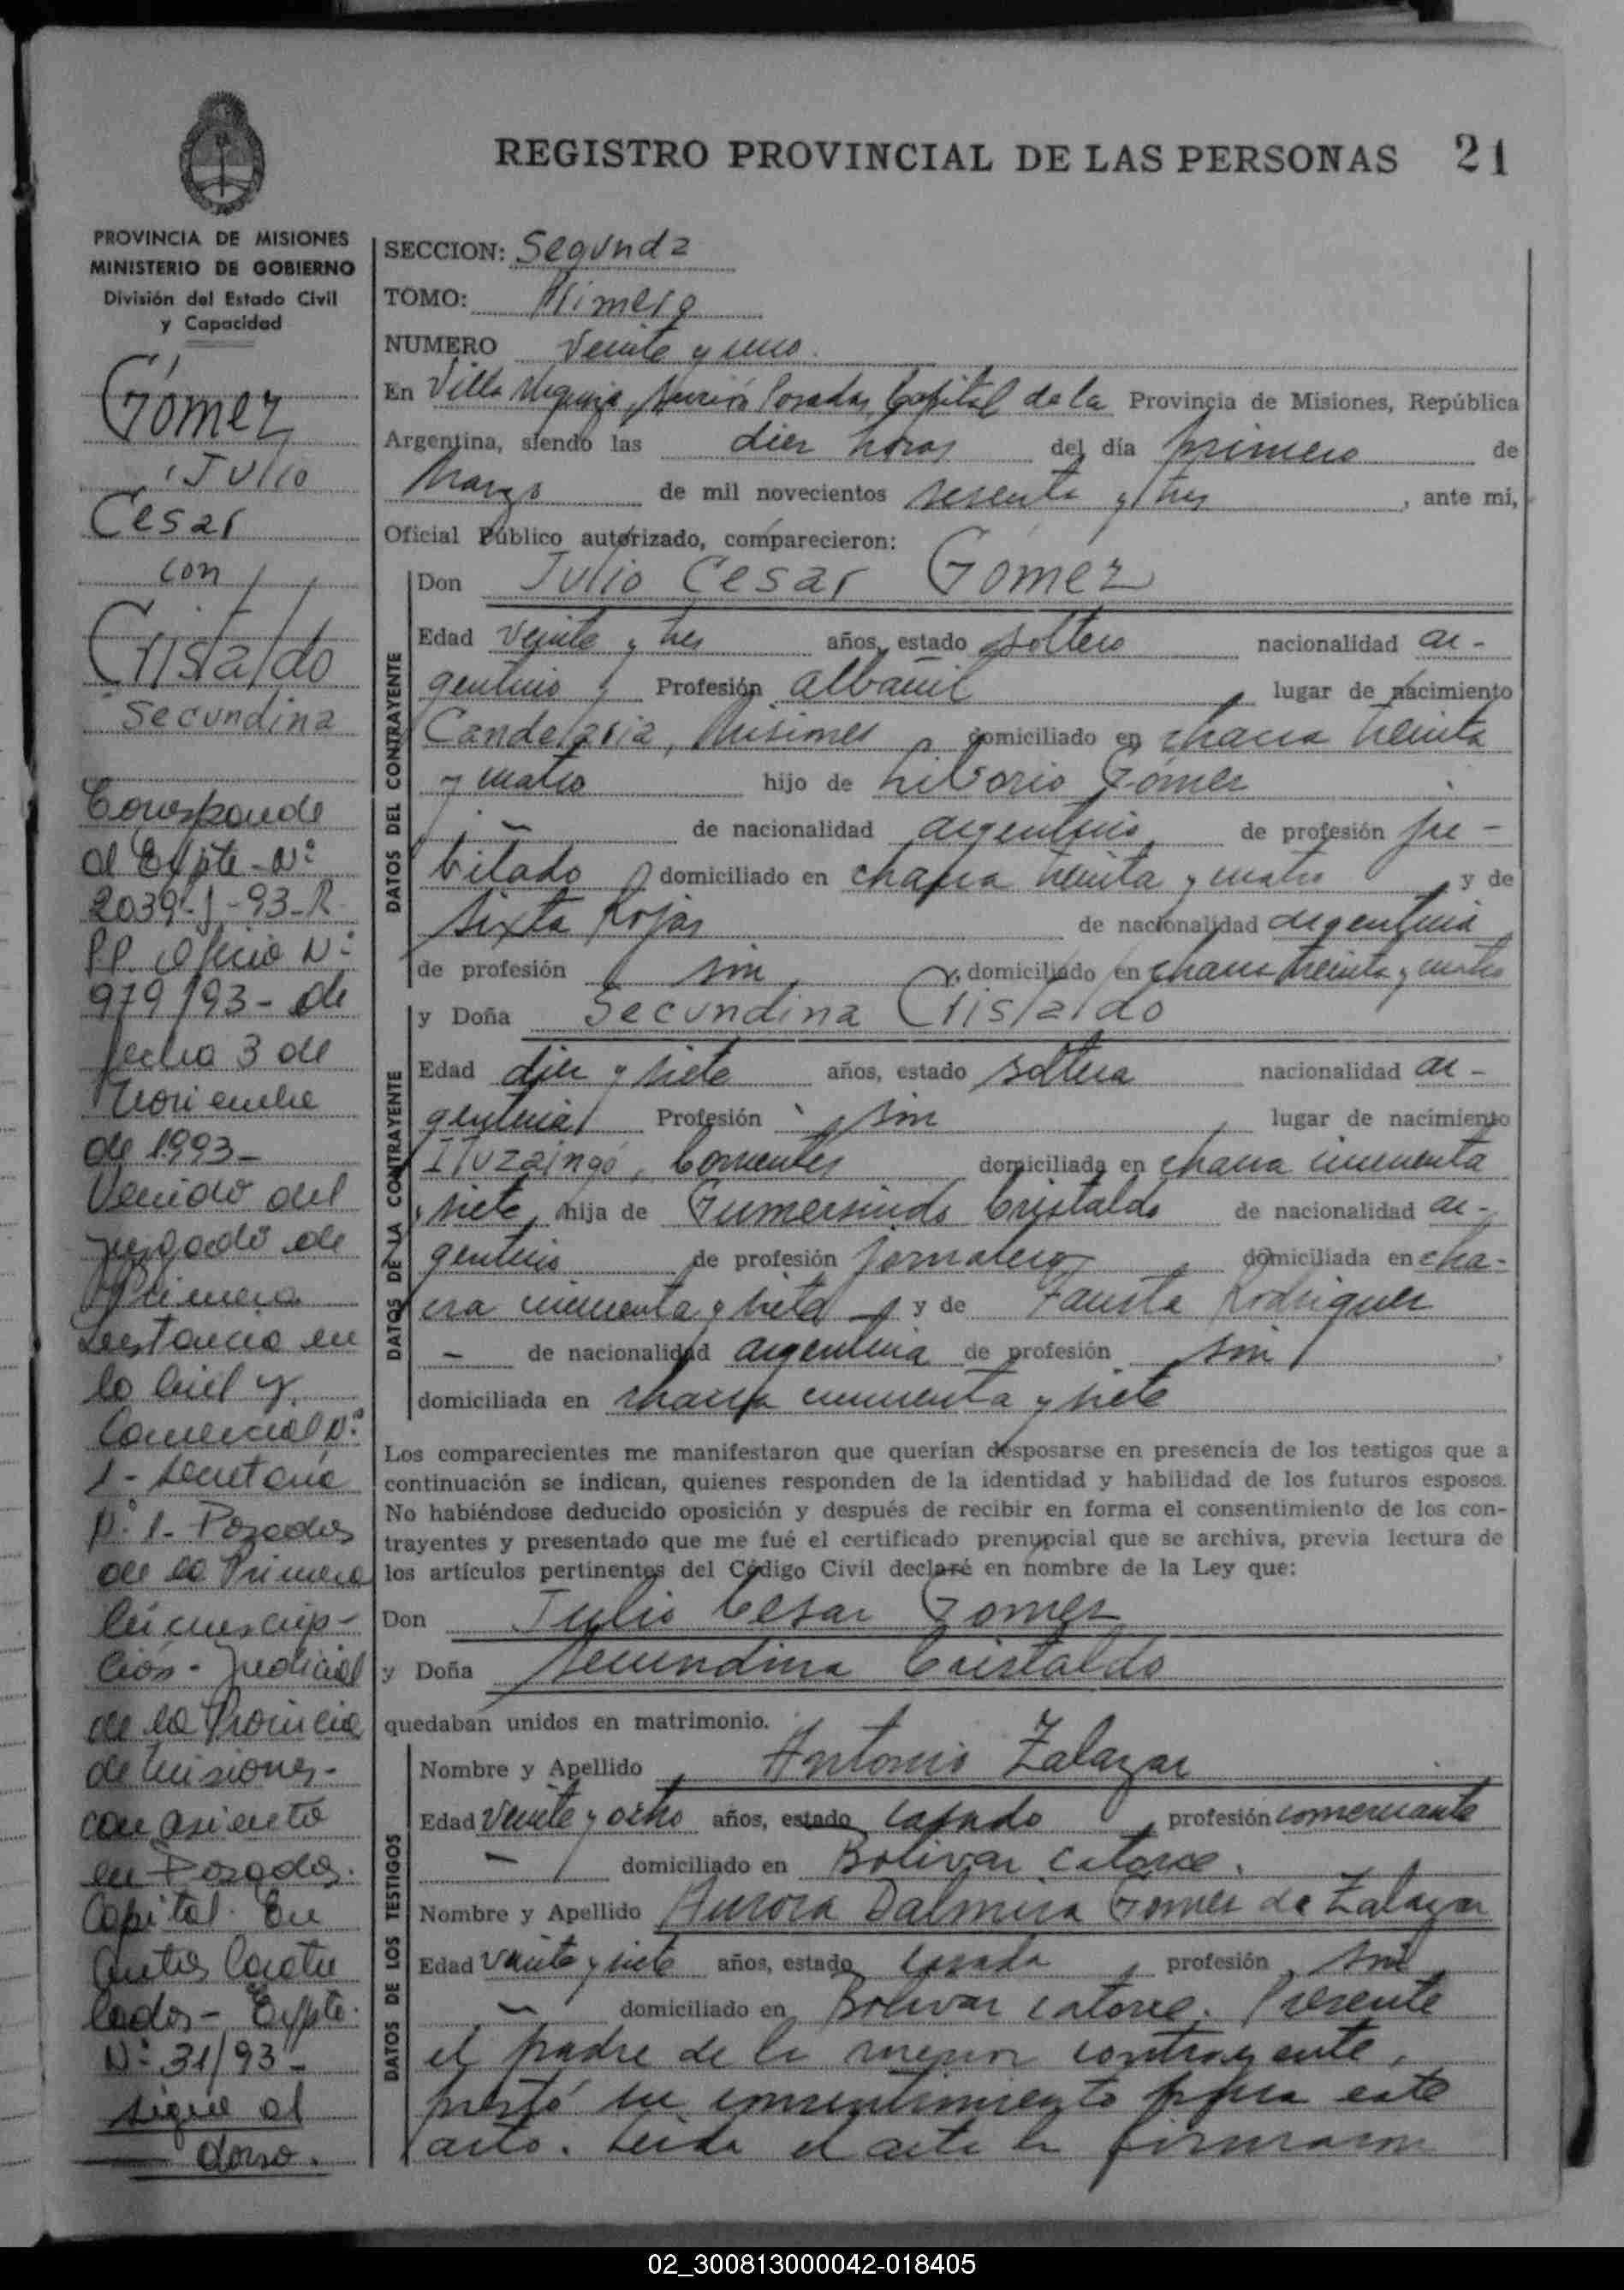 REGISTRO PROVINCIAL DE LAS PERSONAS 21
PROVINCIA DE MISIONES
MINISTERIO DE GOBIERNO
División del Estado Civil
y Capacidad
Gómez
Julio
Cesar
con
Cristaldo
Secundina
Corresponde
al Expte-Nº
2039-J-93-R
P.P. Oficio Nº
979/93- de
fecha 3 de
Noviembre
de 1993-
Venido del
Juzgado de
Primera
Instancia en
lo Civil y
Comercial Nº
1- Secretaria
Nº 1- Posadas
de la Primera
Circunscrip-
ción- Judicial
de la Provincia
de Misiones-
con asiento
en Posadas.
Capital. En
autos Caratu
lados- Expte.
Nº 31/93-
sigue al
dorso.
SECCION: Segunda
TOMO: Primero
NUMERO Veinte y uno.
En Villa Urquiza, Sección Posadas, Capital de la Provincia de Misiones, República
Argentina, siendo las diez horas del día primero de
Marzo de mil novecientos sesenta y tres, ante mi,
Oficial Público autorizado, comparecieron:
DATOS DEL CONTRAYENTE
Don Julio Cesar Gómez
Edad veinte y tres años, estado soltero nacionalidad ar-
gentino, Profesión albañil, lugar de nacimiento
Candelaria, Misiones, domiciliado en chacra treinta
y cuatro hijo de Liborio Gómez
- de nacionalidad argentino, de profesión ju-
bilado, domiciliado en chacra treinta y cuatro, y de
Sixta Rojas de nacionalidad argentina
de profesión sin, domiciliado en chacra treinta y cuatro
DATOS DE LA CONTRAYENTE
y Doña Secundina Cristaldo
Edad diez y siete años, estado soltera nacionalidad ar-
gentina, Profesión sin, lugar de nacimiento
Ituzaingó, Corrientes domiciliada en chacra cincuenta
y siete, hija de Gumersindo Cristaldo de nacionalidad ar-
gentino de profesión jornalero, domiciliada en cha-
cra cincuenta y siete, y de Fausta Rodriguez
- de nacionalidad argentina de profesión sin,
domiciliada en chacra cincuenta y siete
Los comparecientes me manifestaron que querían desposarse en presencia de los testigos que a
continuación se indican, quienes responden de la identidad y habilidad de los futuros esposos.
No habiéndose deducido oposición y después de recibir en forma el consentimiento de los con-
trayentes y presentado que me fué el certificado prenupcial que se archiva, previa lectura de
los artículos pertinentes del Código Civil declaré en nombre de la Ley que:
Don Julio Cesar Gomez
y Doña Secundina Cristaldo
quedaban unidos en matrimonio.
DATOS DE LOS TESTIGOS
Nombre y Apellido Antonio Zalazar
Edad veinte y ocho años, estado casado, profesión comerciante
- domiciliado en Bolivar catorce.
Nombre y Apellido Aurora Dalmira Gomez de Zalazar
Edad veinte y siete años, estado casada, profesión sin
- domiciliado en Bolivar catorce. Presente
el padre de la menor contrayente,
prestó su consentimiento para este
acto. Leida el acta la firmaron
02_300813000042-018405